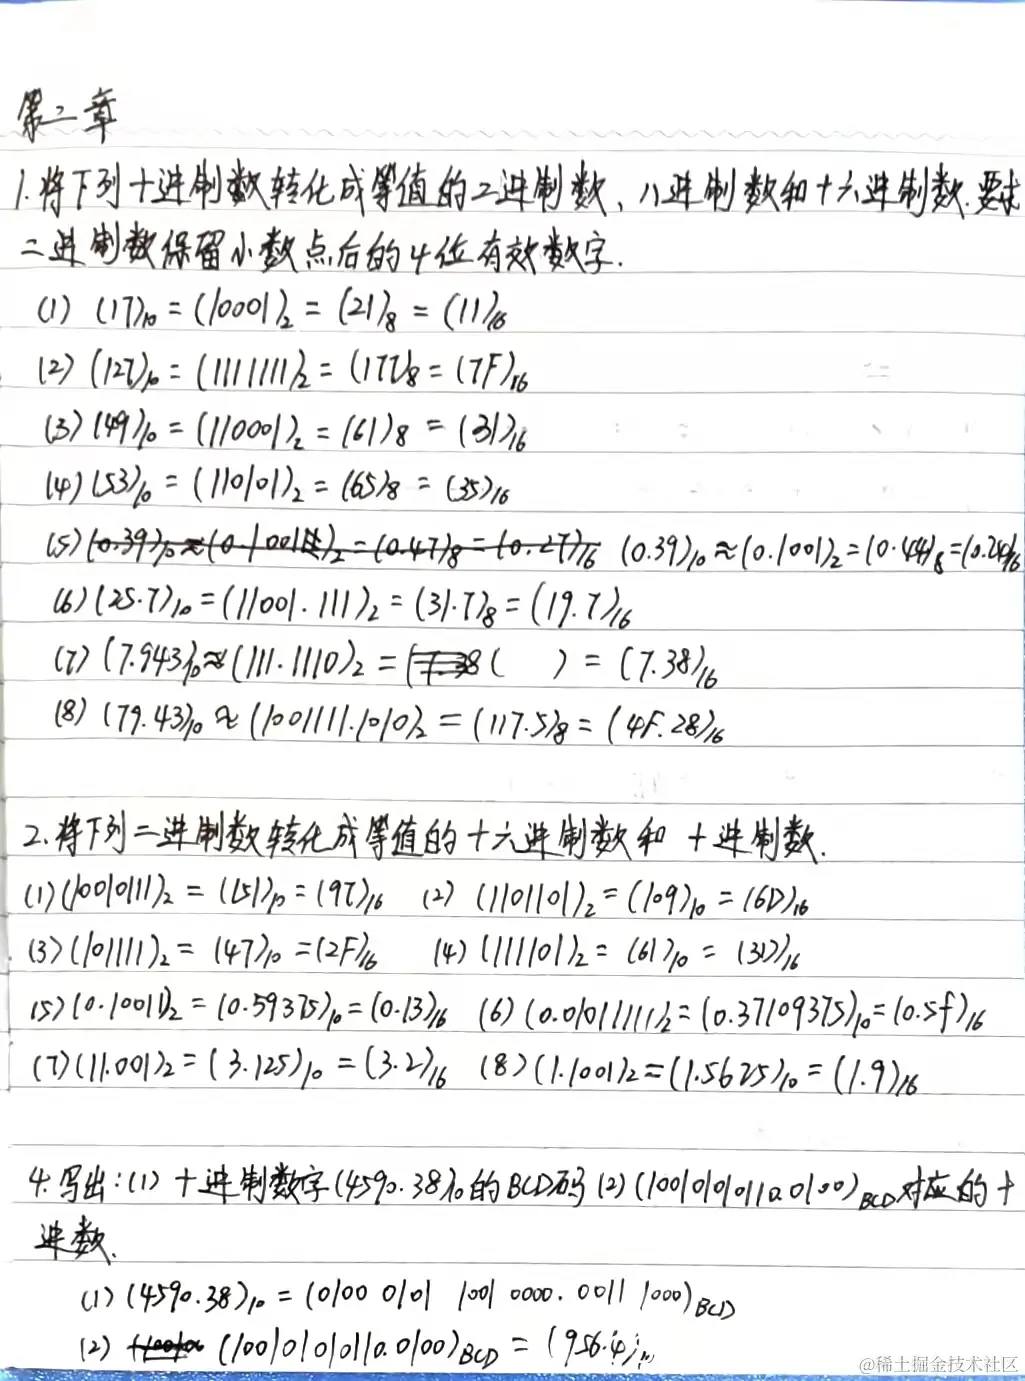 第二章
1.将下列十进制数转化成等值的二进制数、八进制数和十六进制数.要求
二进制数保留小数点后的4位有效数字.
(1) (17)₁₀ = (10001)₂ = (21)₈ = (11)₁₆
(2) (127)₁₀ = (1111111)₂ = (177)₈ = (7F)₁₆
(3) (49)₁₀ = (110001)₂ = (61)₈ = (31)₁₆
(4) (53)₁₀ = (110101)₂ = (65)₈ = (35)₁₆
(5) (0.39)₁₀ ≈ (0.1001)₂ = (0.47)₈ = (0.27)₁₆ (0.39)₁₀ ≈ (0.1001)₂ = (0.44)₈ = (0.24)₁₆
(6) (25.7)₁₀ = (11001.111)₂ = (31.7)₈ = (19.7)₁₆
(7) (7.943)₁₀ ≈ (111.1110)₂ = ( ) = (7.38)₁₆
(8) (79.43)₁₀ ≈ (1001111.1010)₂ = (117.5)₈ = (4F.28)₁₆
2.将下列二进制数转化成等值的十六进制数和十进制数.
(1) (10010111)₂ = (151)₁₀ = (97)₁₆ (2) (1101101)₂ = (109)₁₀ = (6D)₁₆
(3) (101111)₂ = (47)₁₀ = (2F)₁₆ (4) (111101)₂ = (61)₁₀ = (3D)₁₆
(5) (0.10011)₂ = (0.59375)₁₀ = (0.13)₁₆ (6) (0.01011111)₂ = (0.37109375)₁₀ = (0.5f)₁₆
(7) (11.001)₂ = (3.125)₁₀ = (3.2)₁₆ (8) (1.1001)₂ = (1.5625)₁₀ = (1.9)₁₆
4.写出:(1) 十进制数字(4590.38)₁₀的BCD码 (2) (100101010110.0100)BCD对应的十
进数.
(1) (4590.38)₁₀ = (0100 0101 1001 0000.0011 1000)BCD
(2) (100101010110.0100)BCD = (956.4)₁₀
@稀土掘金技术社区